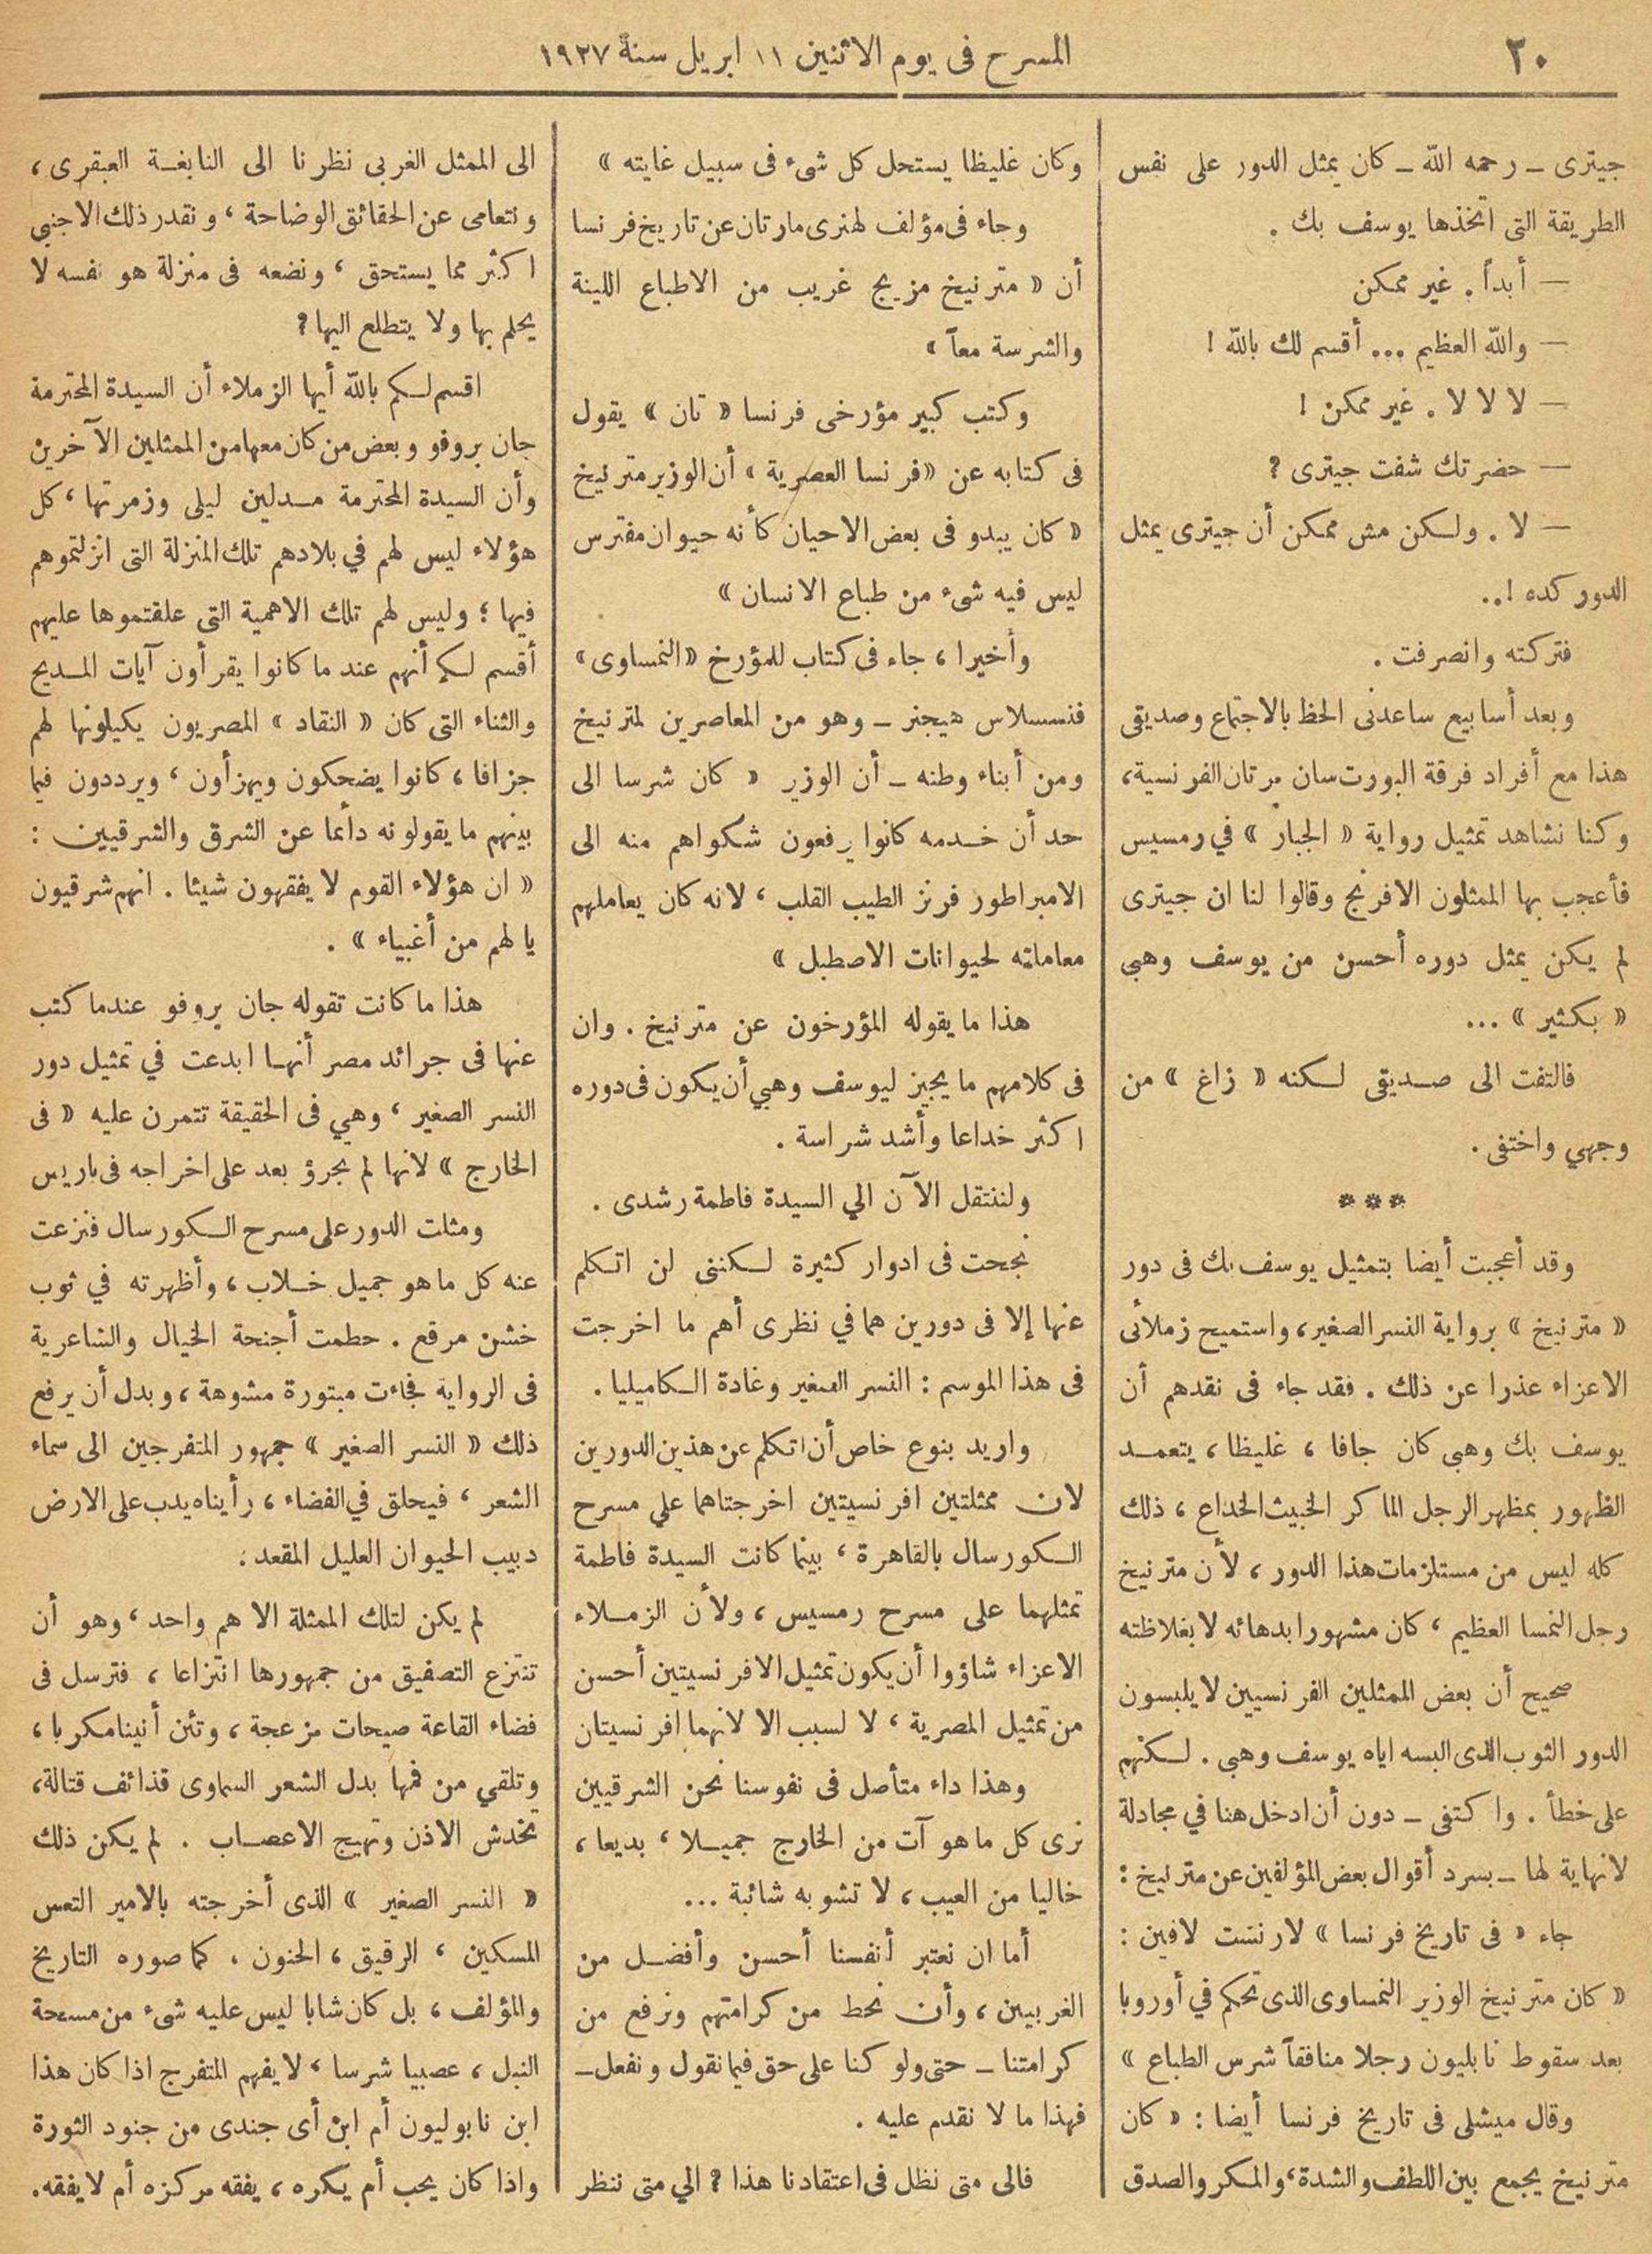 ٢٠
المسرح فى يوم الاثنين ١١ ابريل سنة ١٩٢٧
جيترى ــ رحمه الله ــ كان يمثل الدور على نفس
الطريقة التى اتخذها يوسف بك .
— أبداً . غير ممكن
— والله العظيم ... أقسم لك بالله !
— لا لا لا . غير ممكن !
— حضرتك شفت جيترى ؟
— لا . ولكن مش ممكن أن جيترى يمثل
الدور كده !..
فتركته وانصرفت .
وبعد أسابيع ساعدنى الحظ بالاجتماع وصديقى
هذا مع أفراد فرقة البورت سان مرتان الفرنسية،
وكنا نشاهد تمثيل رواية « الجبار » في رمسيس
فأعجب بها الممثلون الافرنج وقالوا لنا ان جيترى
لم يكن يمثل دوره أحسن من يوسف وهبى
« بكثير » ...
فالتفت الى صديقى لكنه « زاغ » من
وجهي واختفى .
***
وقد أعجبت أيضا بتمثيل يوسف بك فى دور
« مترنيخ » برواية النسر الصغير، واستميح زملائى
الاعزاء عذرا عن ذلك . فقد جاء فى نقدهم أن
يوسف بك وهبى كان جافا ، غليظا ، يتعمد
الظهور بمظهر الرجل الماكر الخبيث الخداع ، ذلك
كله ليس من مستلزمات هذا الدور ، لأن مترنيخ
رجل النمسا العظيم ، كان مشهورا بدهائه لا بغلاظته
صحيح أن بعض الممثلين الفرنسيين لا يلبسون
الدور الثوب الذى البسه اياه يوسف وهبى . لكنهم
على خطأ . واكتفى ــ دون أن ادخل هنا في مجادلة
لانهاية لها ــ بسرد أقوال بعض المؤلفين عن مترنيخ :
جاء « فى تاريخ فرنسا » لارنست لافين :
« كان مترنيخ الوزير النمساوى الذى تحكم في أوروبا
بعد سقوط نابليون رجلا منافقاً شرس الطباع »
وقال ميشلى فى تاريخ فرنسا أيضا : « كان
مترنيخ يجمع بين اللطف والشدة، والمكر والصدق
وكان غليظا يستحل كل شىء فى سبيل غايته »
وجاء فى مؤلف لهنرى مارتان عن تاريخ فرنسا
أن « مترنيخ مزيج غريب من الاطباع اللينة
والشرسة معاً »
وكتب كبير مؤرخى فرنسا « تان » يقول
فى كتابه عن « فرنسا العصرية » أن الوزير مترنيخ
« كان يبدو فى بعض الاحيان كأنه حيوان مفترس
ليس فيه شىء من طباع الانسان »
وأخيرا ، جاء فى كتاب للمؤرخ « النمساوى »
فنسسلاس هيجنر ــ وهو من المعاصرين لمترنيخ
ومن أبناء وطنه ــ أن الوزير « كان شرسا الى
حد أن خدمه كانوا يرفعون شكواهم منه الى
الامبراطور فرنز الطيب القلب ، لانه كان يعاملهم
معاملته لحيوانات الاصطبل »
هذا ما يقوله المؤرخون عن مترنيخ . وان
فى كلامهم ما يجيز ليوسف وهبي أن يكون فى دوره
اكثر خداعا وأشد شراسة .
ولننتقل الآن الي السيدة فاطمة رشدى .
نجحت فى ادوار كثيرة لكننى لن اتكلم
عنها إلا فى دورين هما في نظرى أهم ما اخرجت
فى هذا الموسم : النسر الصغير وغادة الكاميليا .
واريد بنوع خاص أن اتكلم عن هذين الدورين
لان ممثلتين افرنسيتين اخرجتاهما علي مسرح
الكورسال بالقاهرة ، بينما كانت السيدة فاطمة
تمثلهما على مسرح رمسيس ، ولأن الزملاء
الاعزاء شاؤوا أن يكون تمثيل الافرنسيتين أحسن
من تمثيل المصرية ، لا لسبب الا لانهما افرنسيتان
وهذا داء متأصل فى نفوسنا نحن الشرقيين
نرى كل ما هو آت من الخارج جميلا ، بديعا ،
خاليا من العيب ، لا تشوبه شائبة ...
أما ان نعتبر أنفسنا أحسن وأفضل من
الغربيين ، وأن نحط من كرامتهم ونرفع من
كرامتنا ــ حتى ولو كنا على حق فيما نقول ونفعل ــ
فهذا ما لا نقدم عليه .
فالى متى نظل فى اعتقادنا هذا ؟ الي متى ننظر
الى الممثل الغربى نظرنا الى النابغة العبقرى ،
ونتعامى عن الحقائق الوضاحة ، ونقدر ذلك الاجنبى
اكثر مما يستحق ، ونضعه فى منزلة هو نفسه لا
يحلم بها ولا يتطلع اليها ؟
اقسم لكم بالله أيها الزملاء أن السيدة المحترمة
جان بروفو وبعض من كان معها من الممثلين الآخرين
وأن السيدة المحترمة مدلين ليلى وزمرتها ، كل
هؤلاء ليس لهم في بلادهم تلك المنزلة التى انزلتموهم
فيها ؛ وليس لهم تلك الاهمية التى علقتموها عليهم
أقسم لكم أنهم عند ما كانوا يقرأون آيات المديح
والثناء التى كان « النقاد » المصريون يكيلونها لهم
جزافا ، كانوا يضحكون ويهزأون ، ويرددون فيما
بينهم ما يقولونه دائما عن الشرق والشرقيين :
« ان هؤلاء القوم لا يفقهون شيئا . انهم شرقيون
يا لهم من أغبياء » .
هذا ما كانت تقوله جان بروفو عندما كتب
عنها فى جرائد مصر أنها ابدعت في تمثيل دور
النسر الصغير ، وهي فى الحقيقة تتمرن عليه « فى
الخارج » لانها لم تجرؤ بعد على اخراجه فى باريس
ومثلت الدور على مسرح الكورسال فنزعت
عنه كل ما هو جميل خلاب ، وأظهرته في ثوب
خشن مرقع . حطمت أجنحة الخيال والشاعرية
فى الرواية فجاءت مبتورة مشوهة ، وبدل أن يرفع
ذلك « النسر الصغير » جمهور المتفرجين الى سماء
الشعر ، فيحلق في الفضاء ، رأيناه يدب على الارض
دبيب الحيوان العليل المقعد .
لم يكن لتلك الممثلة الا هم واحد ، وهو أن
تنتزع التصفيق من جمهورها انتزاعا ، فترسل فى
فضاء القاعة صيحات مزعجة ، وتئن أنينا مكربا ،
وتلقي من فمها بدل الشعر السماوى قذائف قتالة،
تخدش الاذن وتهيج الاعصاب . لم يكن ذلك
« النسر الصغير » الذى أخرجته بالامير التعس
المسكين ، الرقيق ، الحنون . كما صوره التاريخ
والمؤلف ، بل كان شابا ليس عليه شىء من مسحة
النبل ، عصبيا شرسا ، لا يفهم المتفرج اذا كان هذا
ابن نابوليون أم ابن أى جندى من جنود الثورة
واذا كان يحب أم يكره ، يفقه مركزه أم لا يفقه.